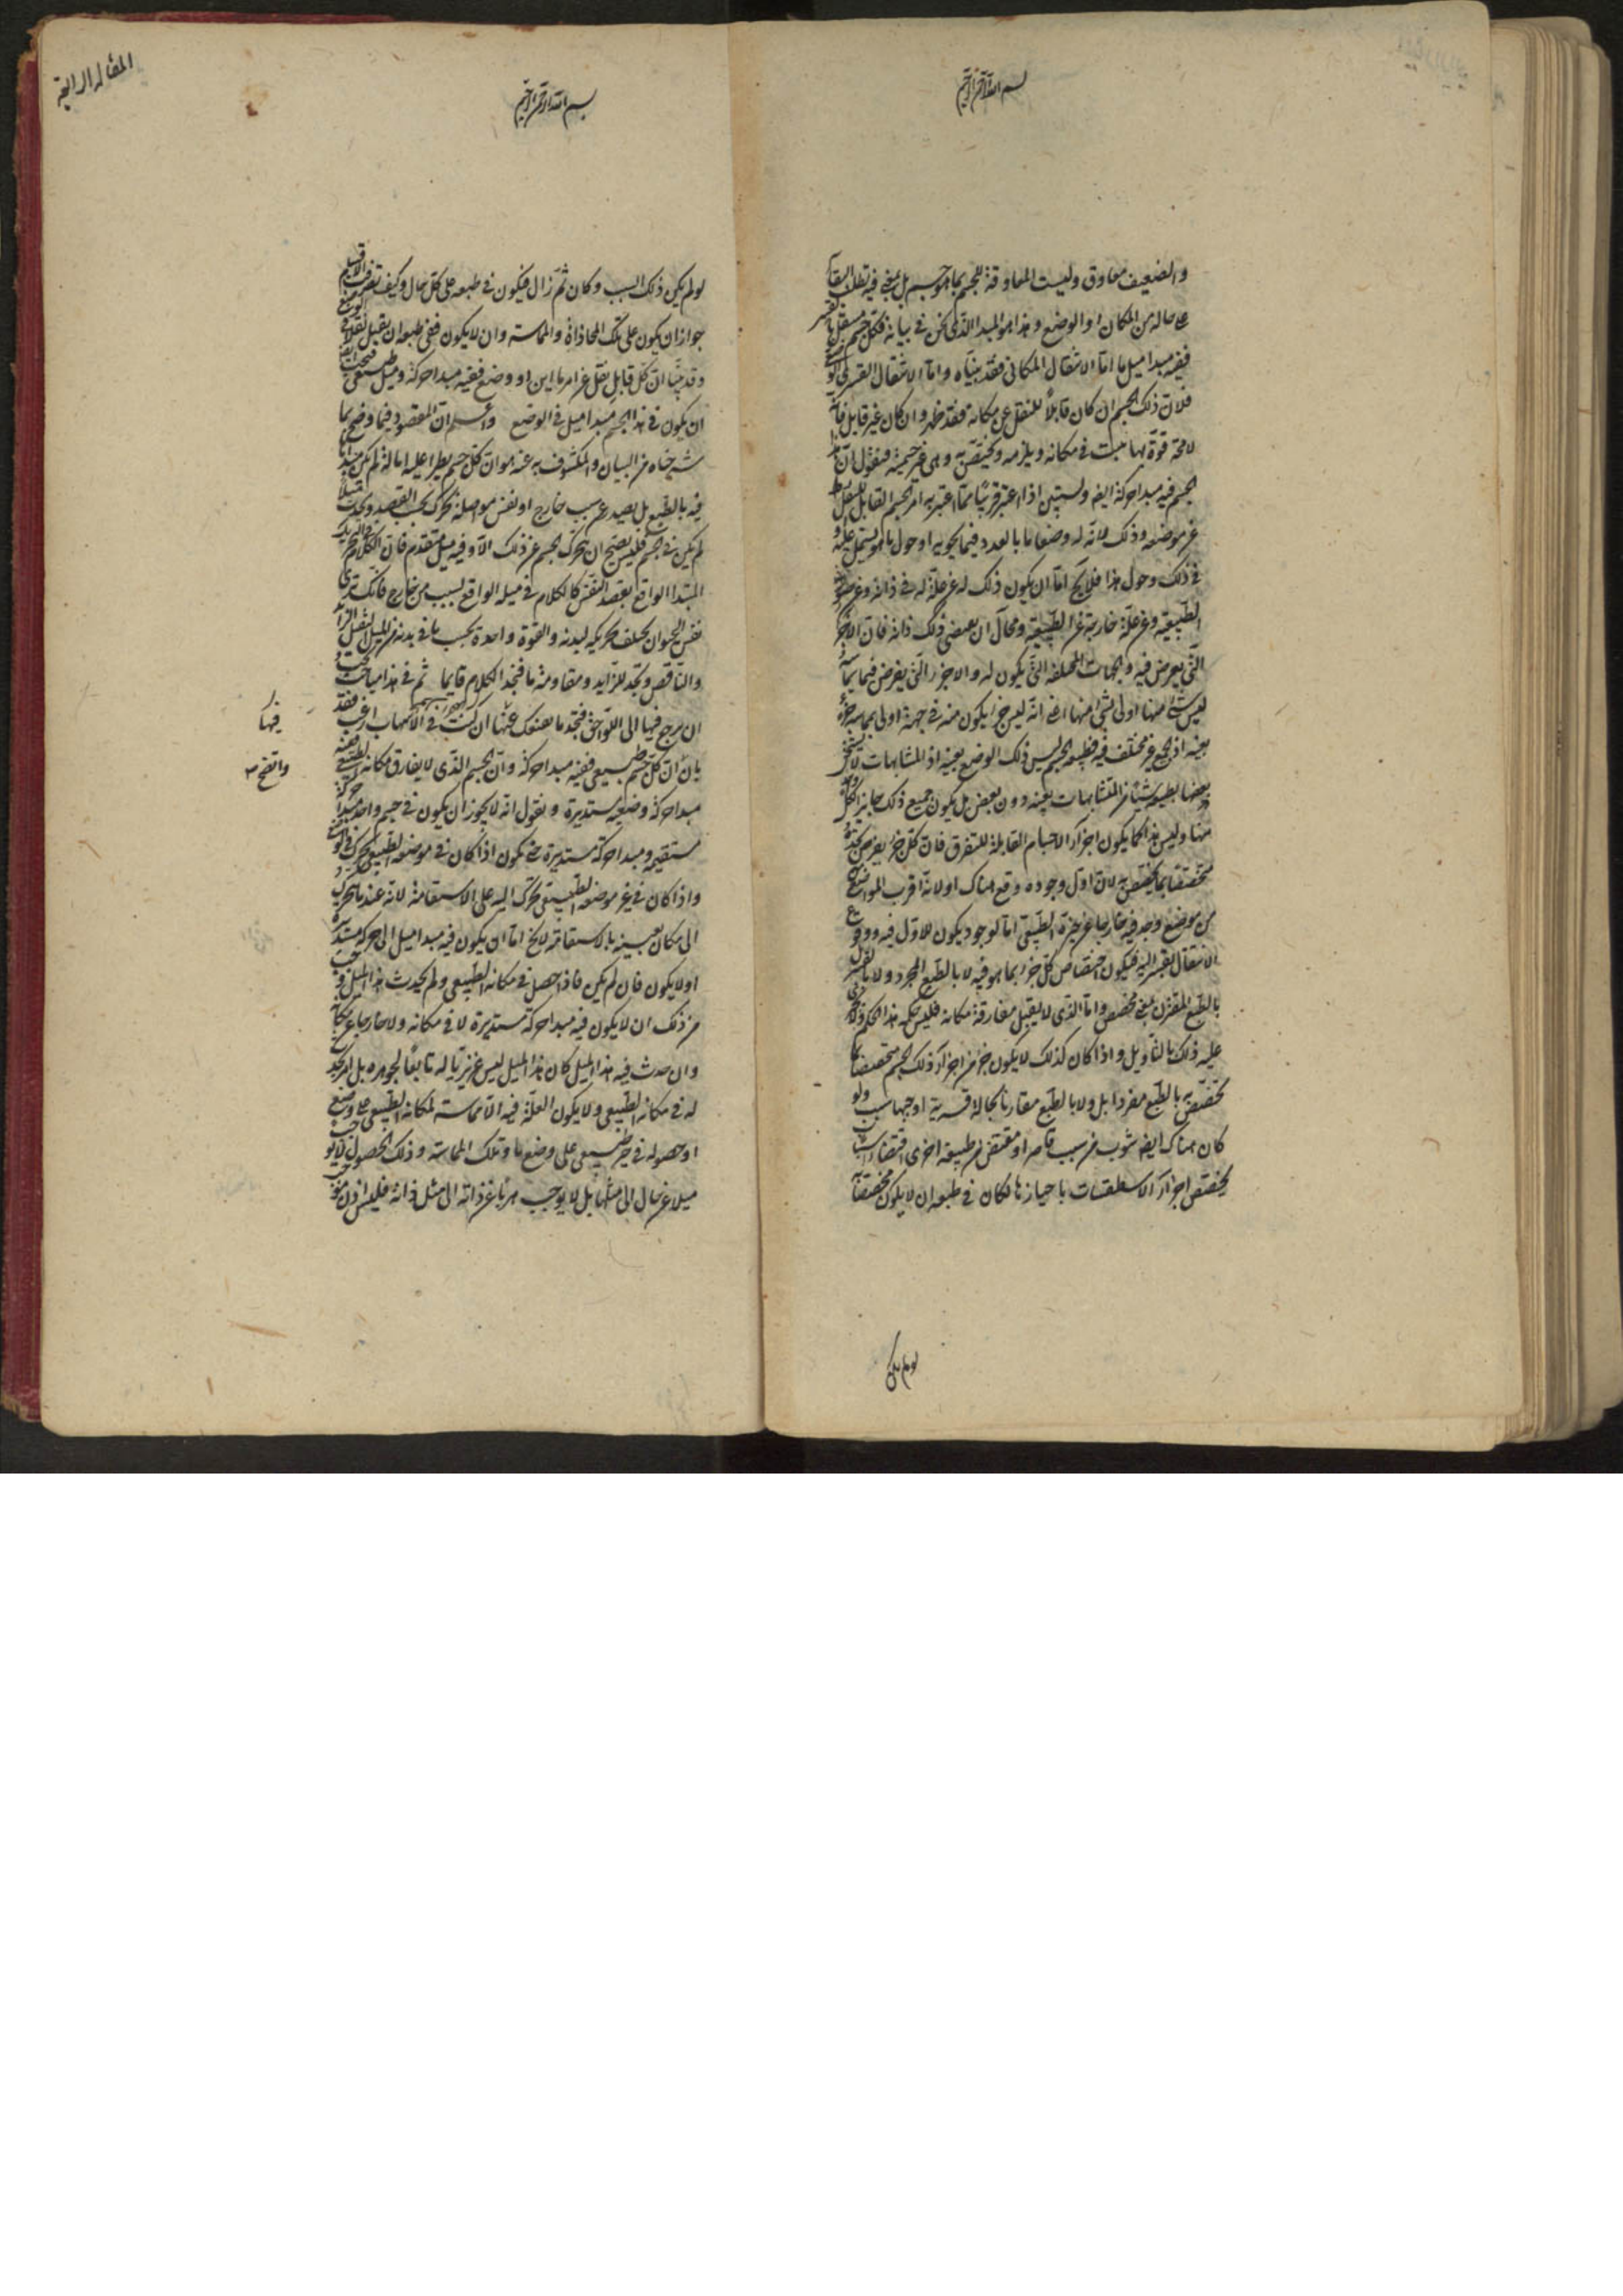 بسم الله الرحمن الرحيم
والضعيف معاوق وليست المعاوقة للجسم بما هو جسم بل بمعنى فيه يطلب البقاء
على حاله من المكان او الوضع وهذا هو المبدا الذى نحن فى بيانه فكل جسم ينتقل بالقسر
ففيه مبدا ميل ما اما الانتقال المكانى فقد بيناه واما الانتقال القسرى الوضعى
فلان ذلك الجسم ان كان قابلا للنقل عن مكانه فقد ظهر وان كان غير قابل فانه
لا محة قوة بها يثبت فى مكانه ويلزمه ويختص به وهى غير جسمية فنقول ان هذا
الجسم فيه مبدا حركة ايضه وليستبين اذا اعتبر قريبا مما اعتبر به امر الجسم القابل للنقل
عن موضعه وذلك لانه له وضعا ما بالعدد فيما يحويه او حول ما هو يشتمل عليه
فى ذلك وحول هذا فلا يخ اما ان يكون ذلك له عن علة له فى ذاته وعن صورته
الطبيعية وعن علة خارجة عن الطبيعة ومحال ان يقتضى ذلك ذاته فان الاجزاء
التى يعرض فيه والجهات المختلفة التى يكون له والاجزاء التى يفرض فيما يماسه
ليس شئ منها اولى بشئ منها اعنى انه ليس جزء يكون منه فى جهة اولى بمماسة جزء
بعينه اذ الجميع غير مختلف فيه فطبيعة الجسم ليس ذلك الوضع بعينه اذ المتشابهات لا يستحق
بعضها بطبيعته شيئا من المتشابهات بعينه دون بعض بل يكون جميع ذلك جايز لكل
منها وليس هذا كما يكون اجزاء الاجسام القابلة للتفرق فان كل جزء يفرض نجده
متخصصا بما يختص به لان اول وجوده وقع هناك او لانه اقرب المواضع
من موضع وجد فيه خارجا عن حيزه الطبيعى اما لوجود يكون للاول فيه ووقوع
الانتقال بالقسر اليه فيكون اختصاص كل جزء بما هو فيه لا بالطبع المجرد ولا بالقسر بل
بالطبع المقترن بمعنى مخصص واما الذى لا يقبل مفارقة مكانه فليس حكمه هذا الحكم
عليه ذلك بالتاويل واذا كان كذلك لا يكون جزء من اجزاء ذلك الجسم متخصصا بما
تخصص به بالطبع مفردا بل ولا بالطبع مقارنا بحالة قسرية اوجبها سبب ولو
كان هناك ايضه شوب من سبب قاسر او مقتض من طبيعة اخرى اقتضاء شيئا
يختص اجزاء الاسطقسات باحيازها لكان فى طبعه ان لا يكون مختصا
لو لم يكن
المقالة الرابعة
بسم الله الرحمن الرحيم
لو لم يكن ذلك السبب وكان ثم زال فيكون فى طبعه على كل حال وكيف تصرفت الاقسام
جواز ان يكون على تلك المحاذاة والمماسة وان لا يكون ففى طبعه ان يقبل نقلا فى الوضع
وقد بينا ان كل قابل نقل عن امر ما اين او وضع ففيه مبدا حركة وميل طبيعى فيجب ايضا
ان يكون فى هذا الجسم مبدا ميل فى الوضع واعلم ان المقصود فيما وضح بما
شرحناه من البيان والمكشوف به عنه هو ان كل جسم يطرا عليه امالة لم يكن مبداها
فيه بالطبع بل يصدر عن سبب خارج او نفس مواصلة تحرك بحسب القصد ويحدث ميلا
لم يكن فى الجسم فليس يصح ان يتحرك الجسم عن ذلك الا وفيه ميل متقدم فان الكلام والتحريك
المبتدا الواقع بقصد النفس كالكلام فى ميله الواقع بسبب من خارج فانك ترى
نفس الحيوان يختلف تحريكه لبدنه والقوة واحدة بحسب ما فى بدنه من الميل الثقيل الزايد
والناقص وتجد للزايد ومقاومة ما فنجد الكلام قايما ثم فى هذا مباحث يجب
ان يرجع فيها الى اللواحق فتجد ما يعينك عنها ان كنت فى الاسهاب ارغب فقد
بان ان كل جسم طبيعى ففيه مبدا حركة وان الجسم الذى لا يفارق مكانه الطبيعى ففيه
مبدا حركة وضعية مستديرة ونقول انه لا يجوز ان يكون فى جسم واحد مبدا حركة
مستقيمة ومبدا حركة مستديرة حتى يكون اذا كان فى موضعه الطبيعى تحرك فى الوضع
واذا كان فى غير موضعه الطبيعى تحرك اليه على الاستقامة لانه عند ما يتحرك
الى مكان بعينه بالاستقامة لا يخ اما ان يكون فيه مبدا ميل الى حركة مستديرة
او لا يكون فان لم يكن فاذا حصل فى مكانه الطبيعى ولم يحدث هذا الميل وجب
من ذلك ان لا يكون فيه مبدا حركة مستديرة لا فى مكانه ولا خارجا عن مكانه
وان حدث فيه هذا الميل كان هذا الميل ليس غريزيا له تابعا لجوهره بل امر يحدث
له فى مكانه الطبيعى ولا يكون العلة فيه الا مماسة لمكانه الطبيعى على وضع
او حصوله فى حيز طبيعى على وضع ما وتلك المماسة وذلك الحصول لا يوجب
ميلا عن حال الى مثلها بل لا يوجب هربا عن ذاته الى مثل ذاته فليس اذن
فيها
واتضح